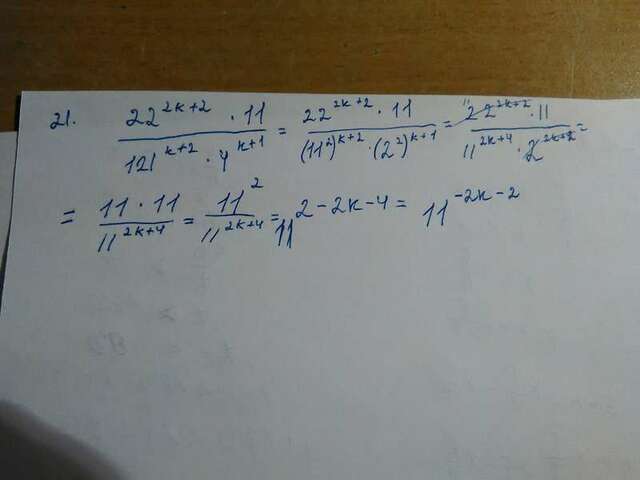 21. 22^{2k+2} · 11 / 121^{k+2} · 4^{k+1} = 22^{2k+2} · 11 / (11^2)^{k+2} · (2^2)^{k+1} = 11 22^{2k+2} · 11 / 11^{2k+4} · 2^{2k+2} =
= 11 · 11 / 11^{2k+4} = 11^2 / 11^{2k+4} = 11^{2-2k-4} = 11^{-2k-2}